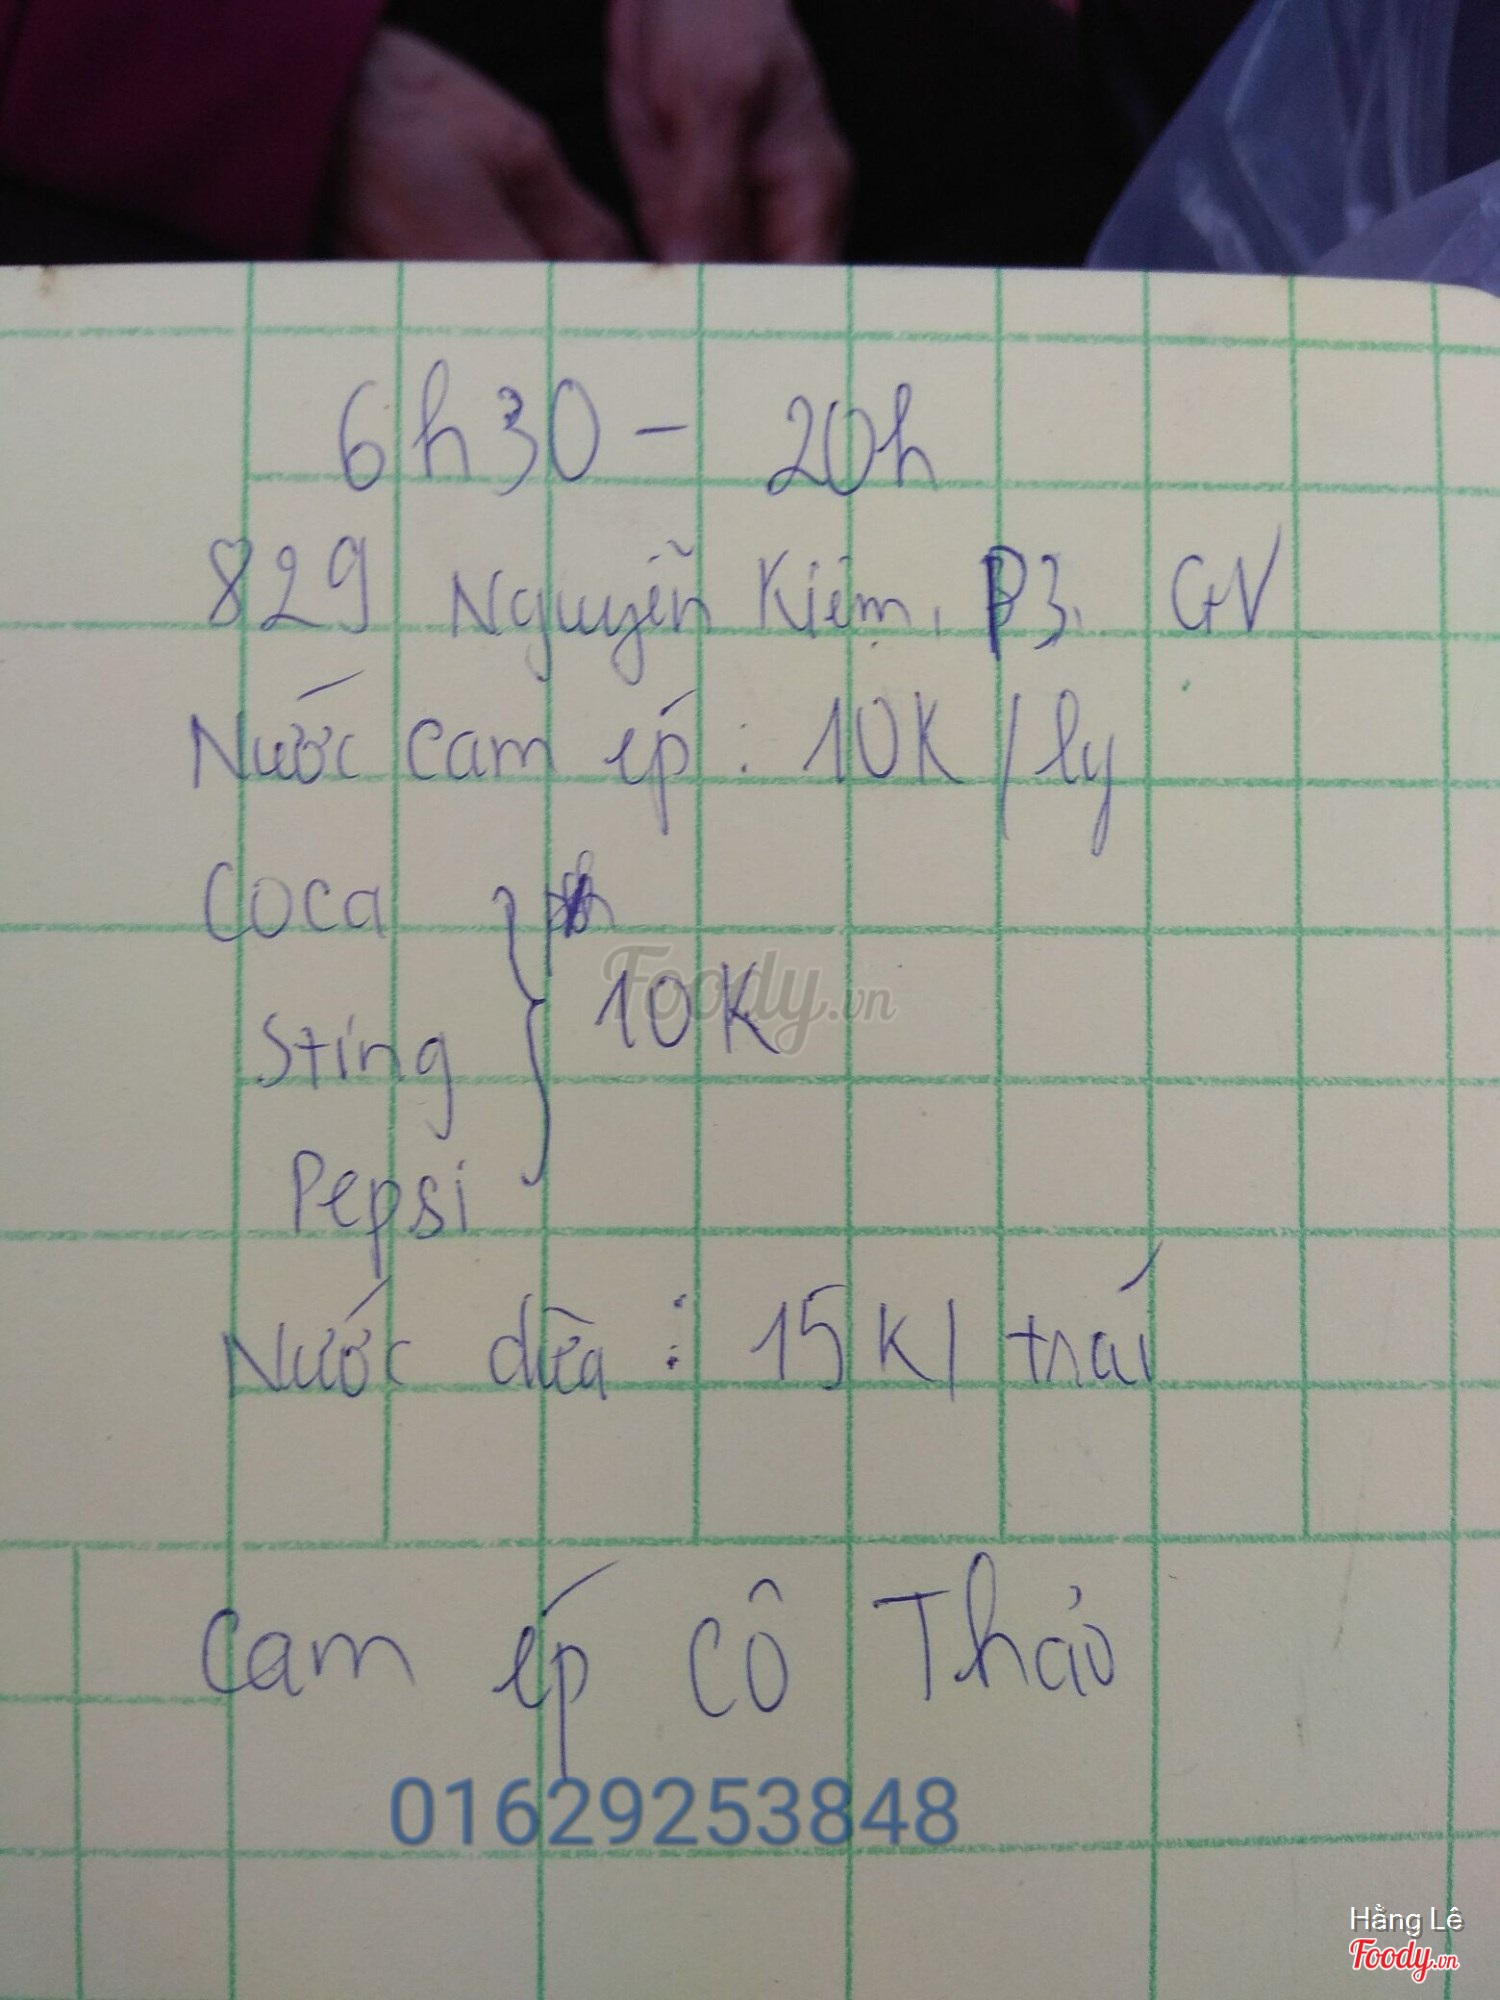 6h30 - 20h
829 Nguyễn Kiệm, P3, GV
Nước cam ép : 10K / ly
Coca
Foody.vn
10K
Sting
Pepsi
Nước dừa : 15K / trái
Cam ép Cô Thảo
01629253848
Hằng Lê
Foody.vn